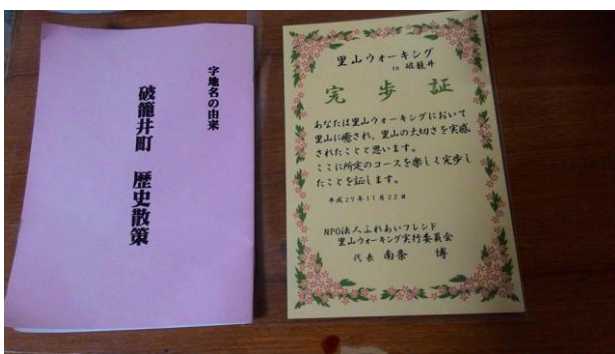 字地名の由来
破籠井町 歴史散策
里山ウォーキング
in 破籠井
完歩証
あなたは里山ウォーキングにおいて
里山に癒され、里山の大切さを実感
されたことと思います。
ここに所定のコースを楽しく完歩し
たことを証します。
平成27年11月22日
NPO法人ふれあいフレンド
里山ウォーキング実行委員会
代表 南条 博